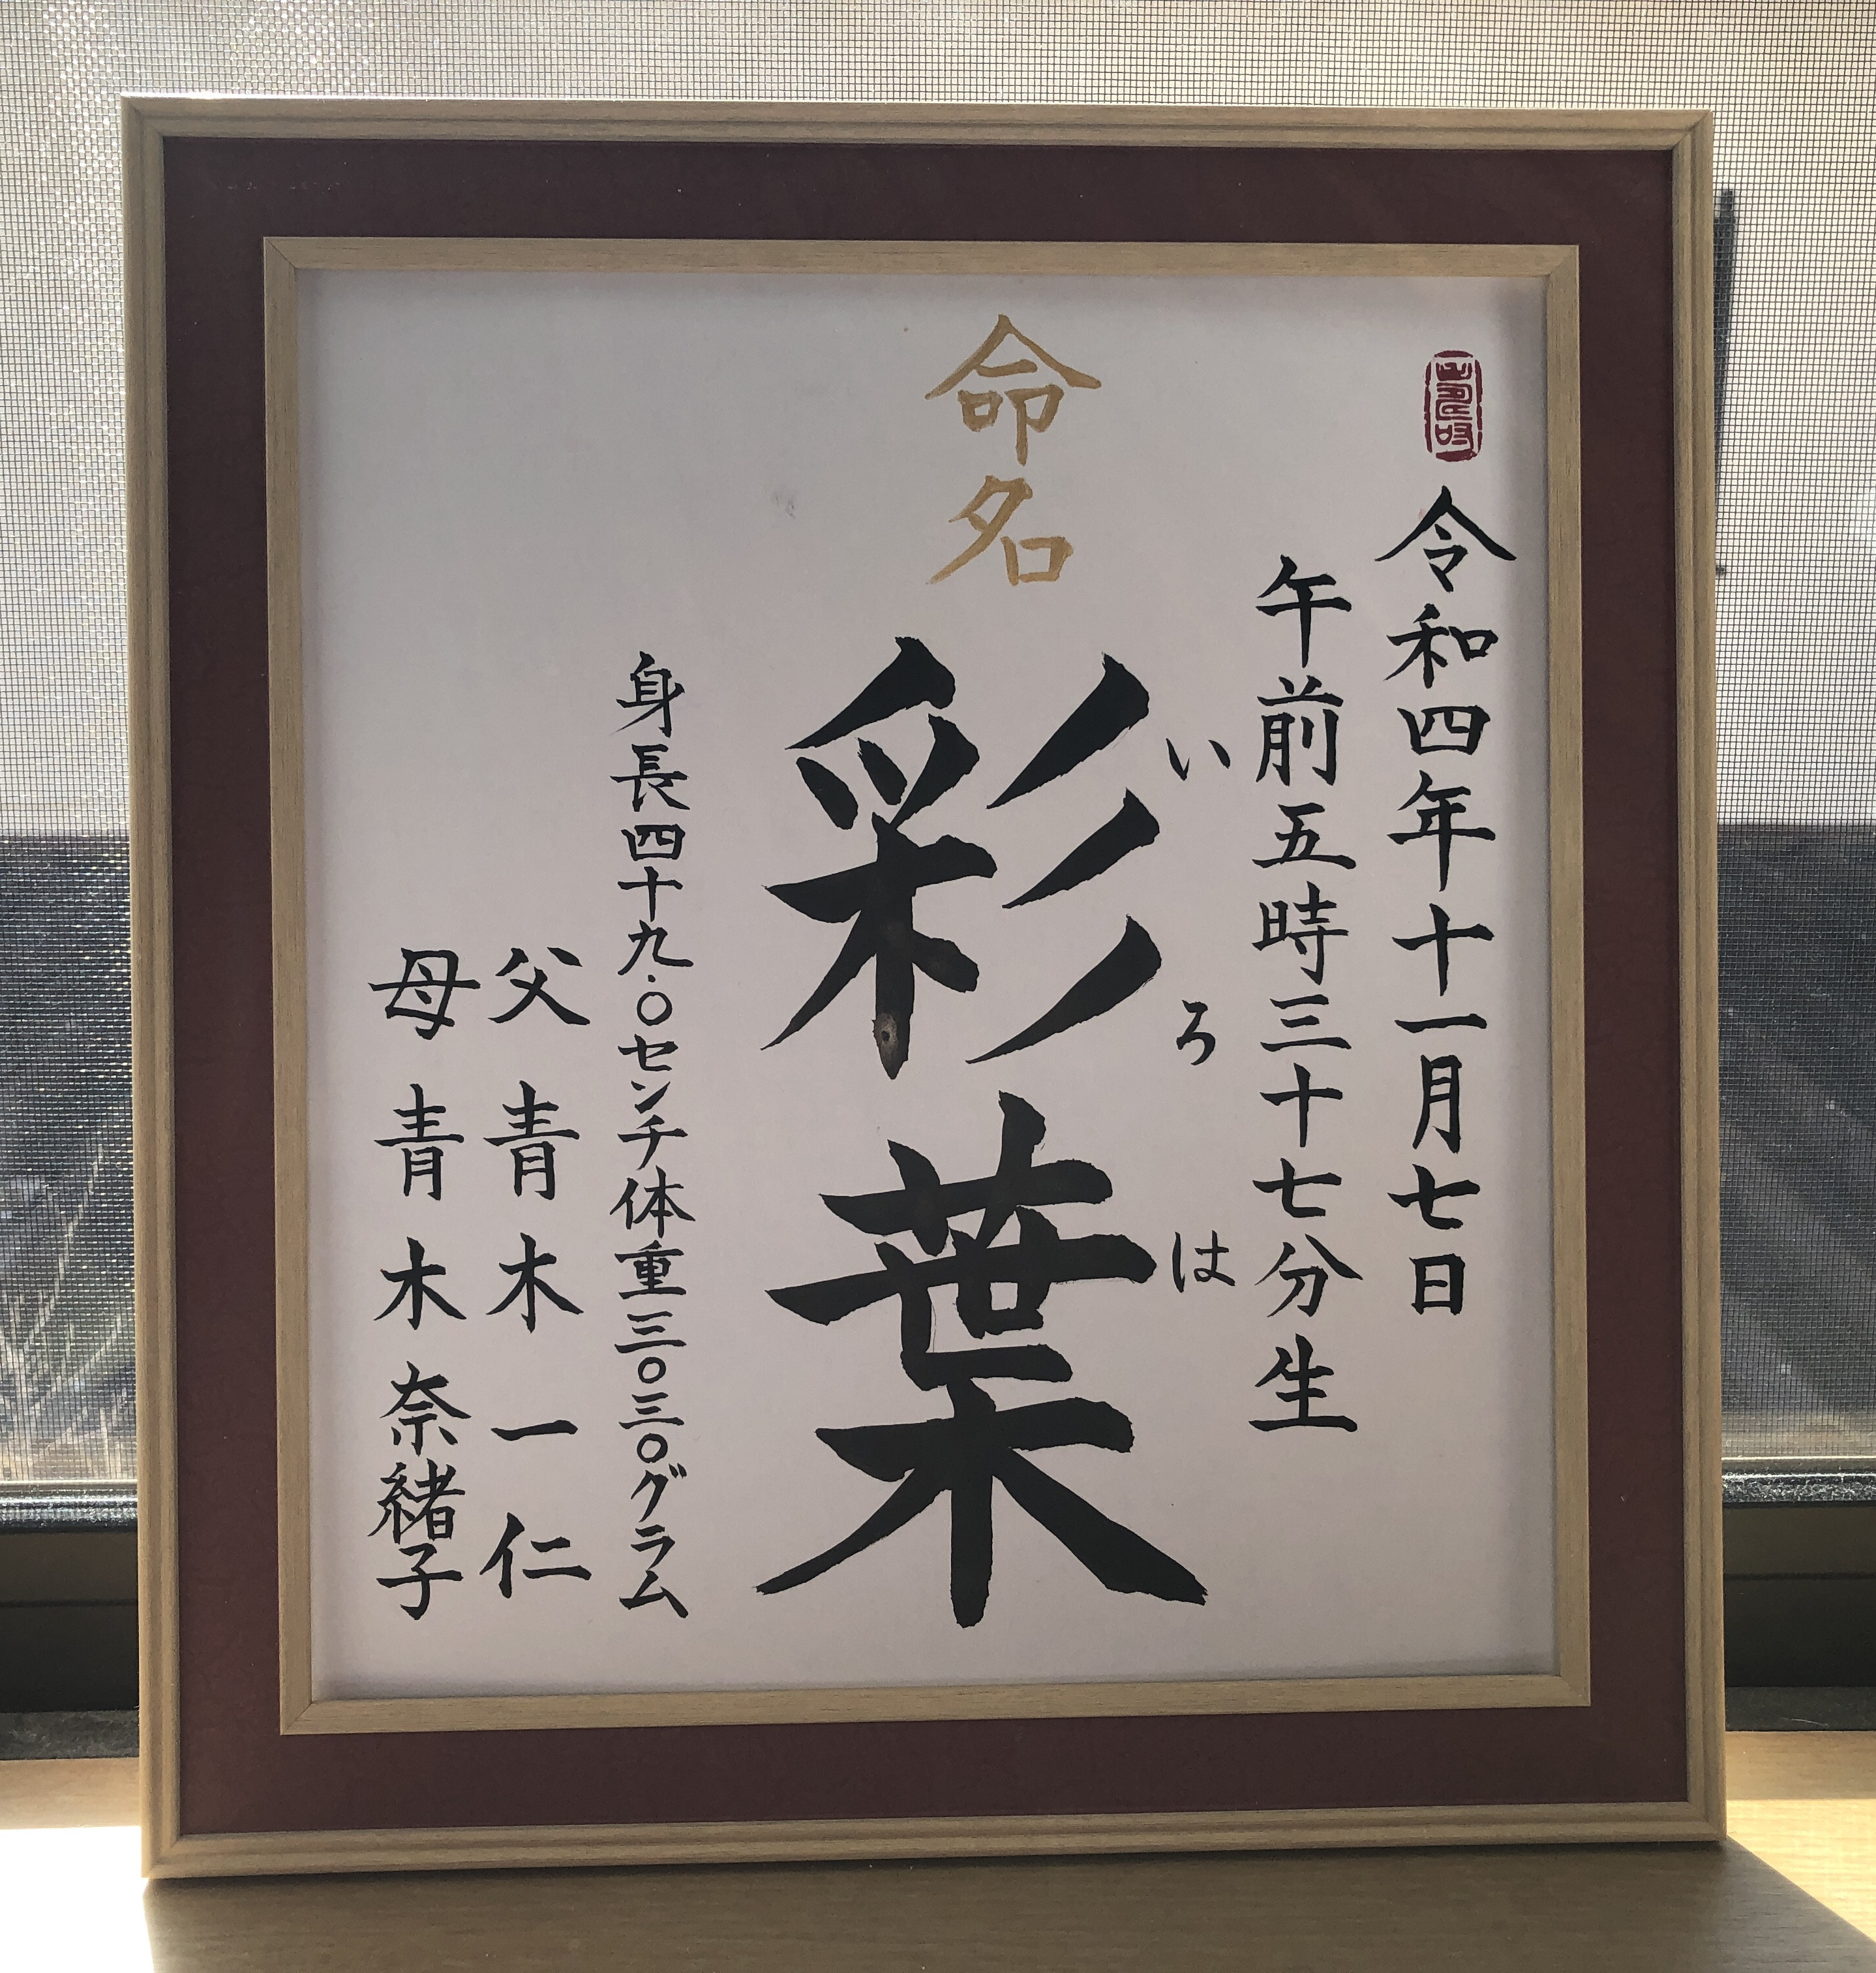 令和四年十一月七日
午前五時三十七分生
命名
彩葉
いろは
身長四十九.〇センチ体重三〇三〇グラム
父 青木一仁
母 青木奈緒子